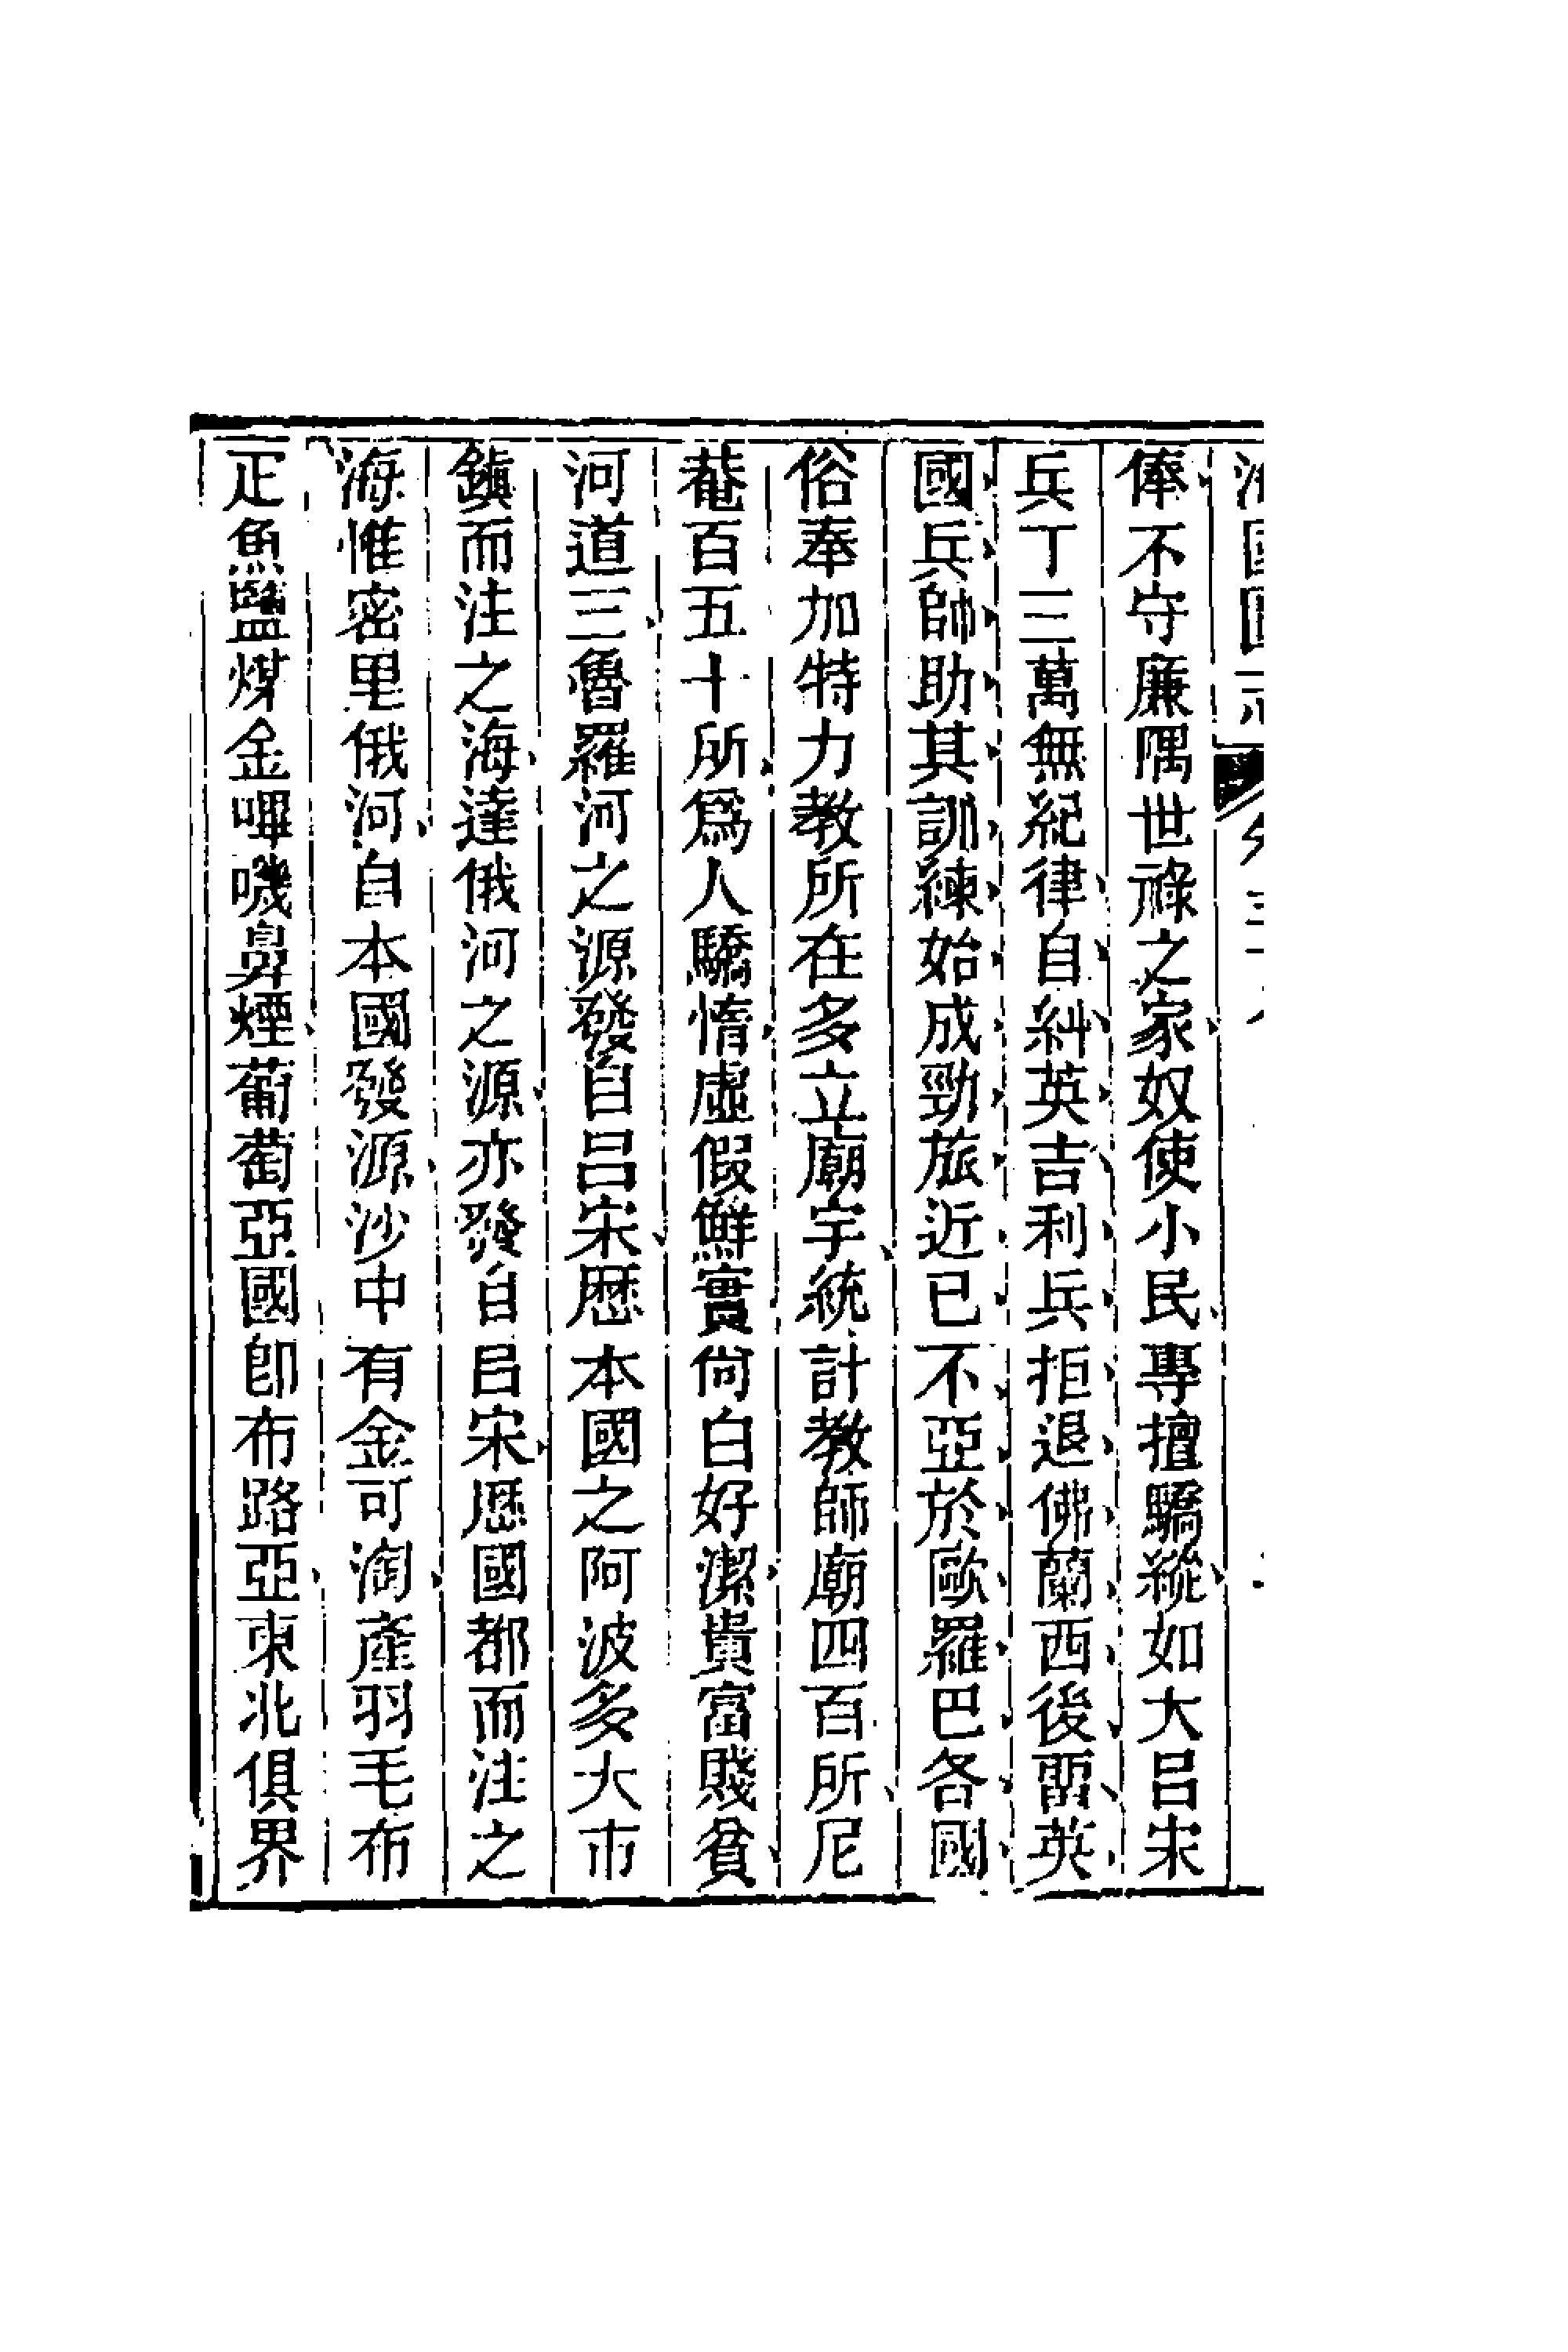 海國圖志 卷三十八
俸不守廉隅世祿之家奴使小民專擅驕縱如大呂宋
兵丁三萬無紀律自糾英吉利兵拒退佛蘭西後留英
國兵帥助其訓練始成勁旅近已不亞於歐羅巴各國
俗奉加特力教所在多立廟宇統計教師廟四百所尼
菴百五十所爲人驕惰虛假鮮實尙白好潔貴富賤貧
河道三魯羅河之源發自呂宋歷本國之阿波多大市
鎭而注之海達俄河之源亦發自呂宋歷國都而注之
海惟密里俄河自本國發源沙中有金可淘產羽毛布
疋魚鹽煤金嗶嘰鼻煙葡萄亞國卽布路亞東北俱界